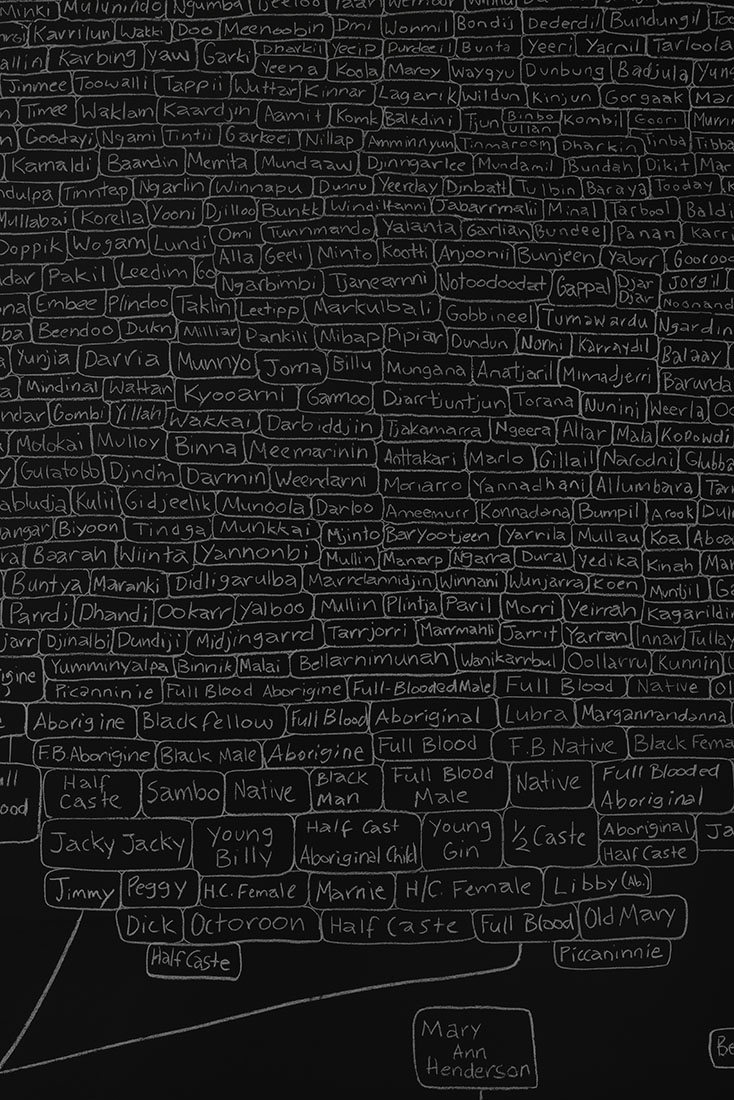 Minki Mulunindo Ngumba
Kavrilun Wakki Doo Meenoobin Dmi Wonmil Bondij Dederdil Bundungil
Karbing Yaw Garki Dharkil Yeeip Purdeeil Bunta Yeeri Yarnil Tarloola
Yeena Koola Maroy Waygyu Dunbung Badjula
Jinmee Toowalli Tappii Wuttar Kinnar Lagarik Wildun Kinjun Gorgaak
Timee Waklam Kaardjin Aamit Komk Balkdini Tjun Binbo Ullan Kombil Goori
Goodayi Ngami Tintii Garkeei Nillap Amminnyun Tinmaroom Dharkin Tinba
Kamaldi Baandin Memita Mundaaw Djinngarlee Mundamil Bundah Dikit
Tinntap Ngarlin Winnapu Dunnu Yeerday Djnbatt Tulbin Baraya Tooday
Mullabai Korella Yooni Djilloo Bunkk Windiltanni Jabarrmalii Minal Tarbool
Doppik Wogam Lundi Omi Tunnmando Yalanta Garlian Bundeel Panan
Alla Geeli Minto Kootti Anjoonii Bunjeen Yabrr
Pakil Leedim Ngarbimbi Tjaneamni Notoodoodat Gappal Djar Djar Jorgil
Embee Plindoo Taklin Leetipp Markulbali Gobbineel Turnawardu
Beendoo Dukn Milliar Pankili Mibap Pipiar Dundun Nonni Karraydil Ngardin
Yunjia Darria Munnyo Joma Billu Mungana Anatjaril Minnadjerri Balaay
Mindinal Wattan Kyooarni Gamoo Djarrtjuntjun Torana Nunini Weerla Barunda
Gombi Yillah Wakkai Darbiddjin Tjakamarra Ngeera Allar Mala Kopowdi
Molokai Mulloy Binna Meemarinin Anttakari Marlo Gillail Narodni
Gulatobb Djndin Darmin Weendarni Moriarro Yannadhani Allumbara
Kulil Gidjeelik Munoola Darloo Ameemurr Konnadana Bumpil Arook
Biyoon Tindga Munkkai Mjinto Baryootjeen Yarrila Mullau Koa
Baarah Wiinta Yannonbi Mullin Manarp Ngarra Dural Yedika Kinah
Buntya Maranki Didligarulba Marrclannidjin Winnani Wunjarra Koen Muntjil
Parrdi Dhandi Ookarr Yalboo Mullin Plintja Paril Morri Yeirrah Kagarildin
Djinalbi Dundiji Midjingarrd Tarrjorri Marrmahli Jarrit Yarran Innar
Yumminyalpa Binnik Malai Bellarnimunah Wanikarrbul Oollarru Kunnin
Picanninie Full Blood Aborigine Full-Blooded Male Full Blood Native
Aborigine Blackfellow Full Blood Aboriginal Lubra Marganmandanna
F.B. Aborigine Black Male Aborigine Full Blood F.B Native Black
Half Caste Sambo Native Black Man Full Blood Male Native Full Blooded Aboriginal
Jacky Jacky Young Billy Half Cast Aboriginal Child Young Gin ½ Caste Aboriginal
Half Caste
Jimmy Peggy H.C. Female Marnie H/C. Female Libby (Ab.)
Dick Octoroon Half Caste Full Blood Old Mary
Half Caste Piccaninnie
Mary
Ann
Henderson